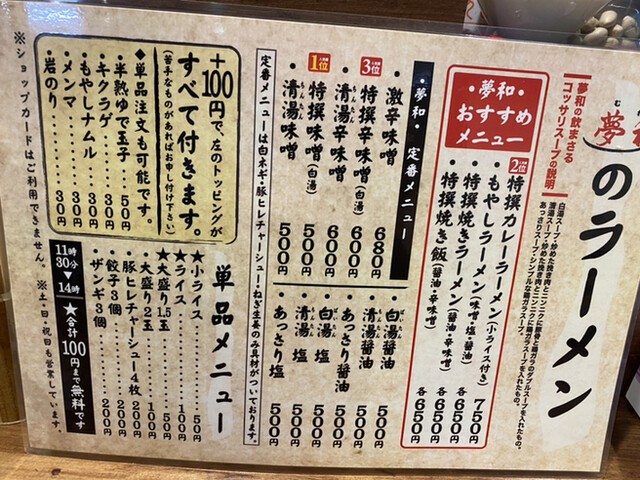 夢和
のラーメン
夢和の飲まさる
コッサリスープの説明
白湯スープ・炒めた挽き肉とニンニクに豚骨と鶏ガラのダブルスープを入れたもの。
清湯スープ・炒めた挽き肉とニンニクに鶏ガラスープを入れたもの。
あっさりスープ・シンプルな鶏ガラスープ。
・夢和・
おすすめ
メニュー
2位
・特撰カレーラーメン(小ライス付き) 750円
・もやしラーメン(味噌・塩・醤油) 各650円
・特撰焼きラーメン(醤油・辛味噌) 各650円
・特撰焼き飯(醤油・辛味噌) 各650円
・夢和・ 定番メニュー
・激辛味噌 680円
3位
・特撰辛味噌(白湯) 600円
・清湯辛味噌 600円
1位
・特撰味噌(白湯) 500円
・清湯味噌 500円
・白湯醤油 500円
・清湯醤油 500円
・あっさり醤油 500円
・白湯塩 500円
・清湯塩 500円
・あっさり塩 500円
定番メニューは白ネギ・豚ヒレチャーシュー・ねぎ生姜のみ具材がついております。
+100円で、左のトッピングが
すべて付きます。
(苦手なものがあればお申し付け下さい)
◆単品注文も可能です。
・半熟ゆで玉子 50円
・キクラゲ 30円
・もやしナムル 30円
・メンマ 30円
・岩のり 30円
単品メニュー
★小ライス 50円
★ライス 100円
★大盛り1.5玉 50円
・大盛り2玉 100円
・豚ヒレチャーシュー4枚 200円
・餃子3個 200円
・ザンギ3個 200円
11時30分▼14時
★合計100円まで無料です
※ショップカードはご利用できません。 ※土・日・祝日も営業しています。